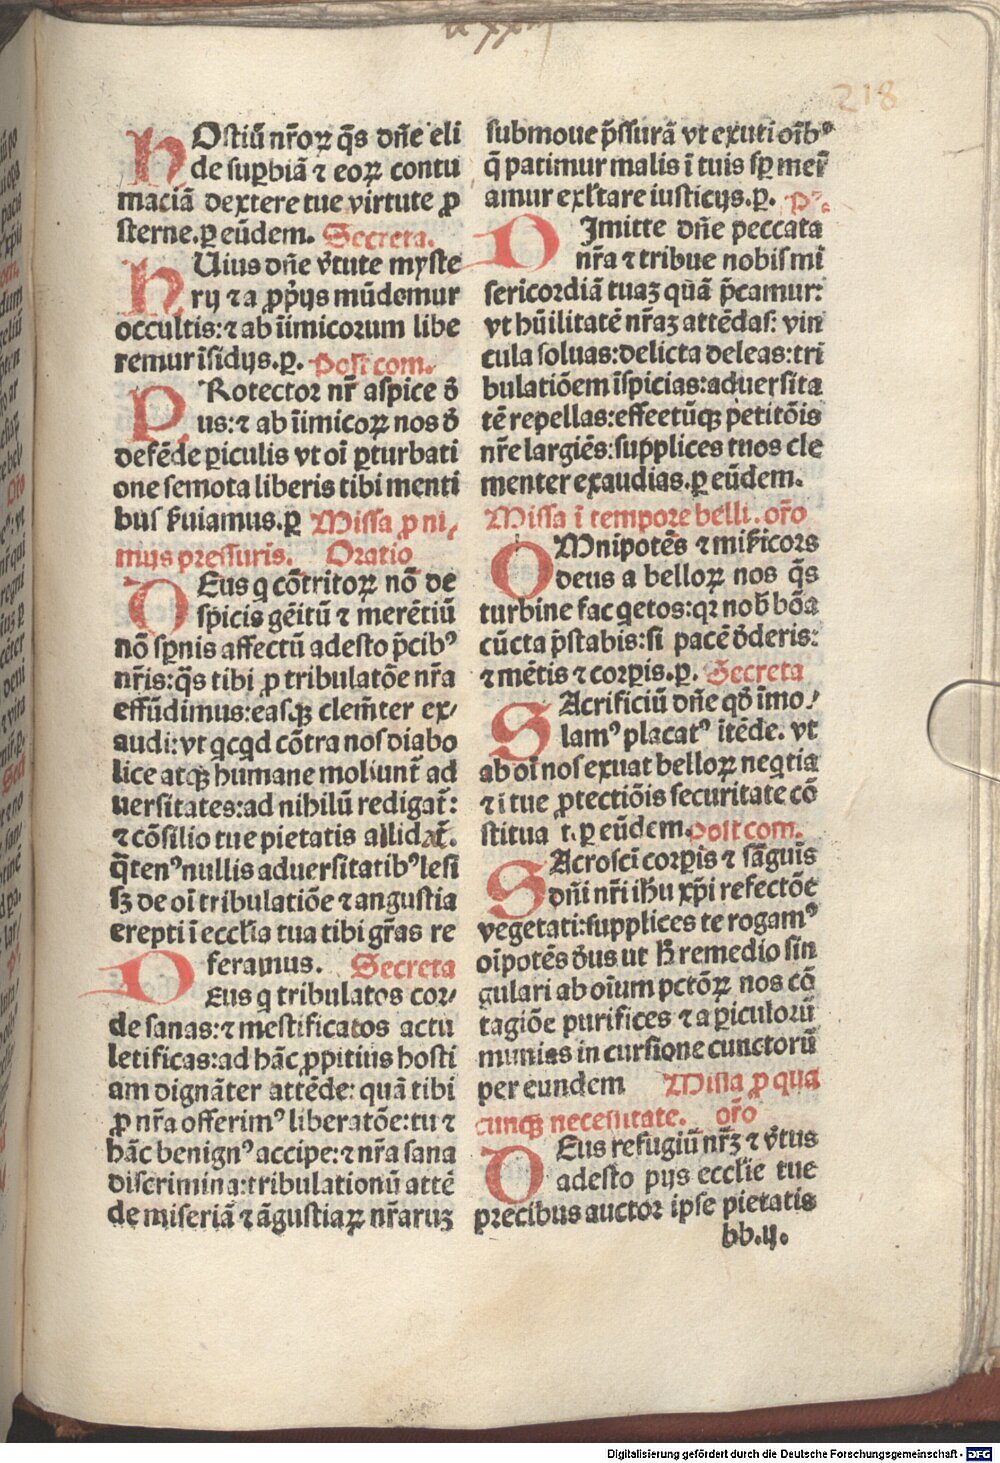 218
HOstiū nr̄oꝝ q̄s dn̄e eli
de sup̱biā ⁊ eoꝝ contu
maciā dextere tue virtute ꝓ
sterne.ꝑ eūdem. Secreta.
HUius dn̄e v̄tute myste
rij ⁊ a ꝓpr̄ijs mūdemur
occultis:⁊ ab īimicorum libe
remur īsidijs.ꝑ. Post com.
PRotector nr̄ aspice d̄
us:⁊ ab īimicoꝝ nos d̄
defēde ꝑiculis vt oī ꝑturbati
one semota liberis tibi menti
bus s̄uiamus.ꝑ Missa ꝓ ni,
mijs pressuris. Oratio
DEus q cōtritoꝝ nō de
spicis gēitū ⁊ merētiū
nō sꝑnis affectū adesto p̄cibꝰ
nr̄is:q̄s tibi ꝓ tribulatōe nr̄a
effūdimus:easqꝫ clem̄ter ex⸗
audi:vt qcqd cōtra nos diabo
lice atqꝫ humane moliunt̄ ad
uersitates:ad nihilū redigat̄:
⁊ cōsilio tue pietatis allidat̄.
q̄tenꝰ nullis aduersitatibꝰ lesi
sꝫ de oī tribulatiōe ⁊ angustia
erepti ī eccl̄ia tua tibi gr̄as re
feramus. Secreta
DEus q tribulatos cor⸗
de sanas:⁊ mestificatos actu
letificas:ad hāc ꝓpitius hosti
am dignāter attēde: quā tibi
ꝓ nr̄a offerimꝰ liberatōe:tu ⁊
hāc benignꝰ accipe:⁊ nr̄a sana
discrimina:tribulationū attē
de miseriā ⁊ āgustiaꝝ nr̄aruꝫ
submoue p̄ssurā vt exuti oībꝰ
q̄ patimur malis ī tuis sꝑ mer̄
amur exl̄tare iusticijs.ꝑ.
DImitte dn̄e peccata
nr̄a ⁊ tribue nobis mi
sericordiā tuaꝫ quā p̄camur:
vt hūilitatē nr̄aꝫ attēdas: vin
cula soluas:delicta deleas:tri
bulatiōem īspicias:aduersita
tē repellas:effectūqꝫ petitōis
nr̄e largiēs:supplices tuos cle
menter exaudias.ꝑ eūdem.
Missa ī tempore belli. or̄o
OMnipotēs ⁊ mis̄icors
deus a belloꝝ nos q̄s
turbine fac qetos:qꝛ nob̄ bōa
cūcta p̄stabis:si pacē d̄deris:
⁊ mētis ⁊ corꝑis.ꝑ. Secreta
SAcrificiū dn̄e qd̄ īmo⸗
lamꝰ placatꝰ ītēde. vt
ab oī nos exuat belloꝝ neqtia
⁊ i tue ꝓtectiōis securitate cō
stitua t.ꝑ eūdem. post com.
SAcroscī corꝑis ⁊ sāguīs
dn̄i nr̄i ih̄u xp̄i refectōe
vegetati:supplices te rogamꝰ
oīpotēs d̄us ut h̄ remedio sin
gulari ab oīum pctōꝝ nos cō
tagiōe purifices ⁊ a ꝑiculorū
munias in cursione cunctorū
per eundem Missa ꝓ qua
cunqꝫ necessitate. or̄o
DEus refugiū nr̄ꝫ ⁊ v̄tus
adesto pijs ecclīe tue
precibus auctor ipse pietatis
bb.ij.
Digitalisierung gefördert durch die Deutsche Forschungsgemeinschaft - DFG